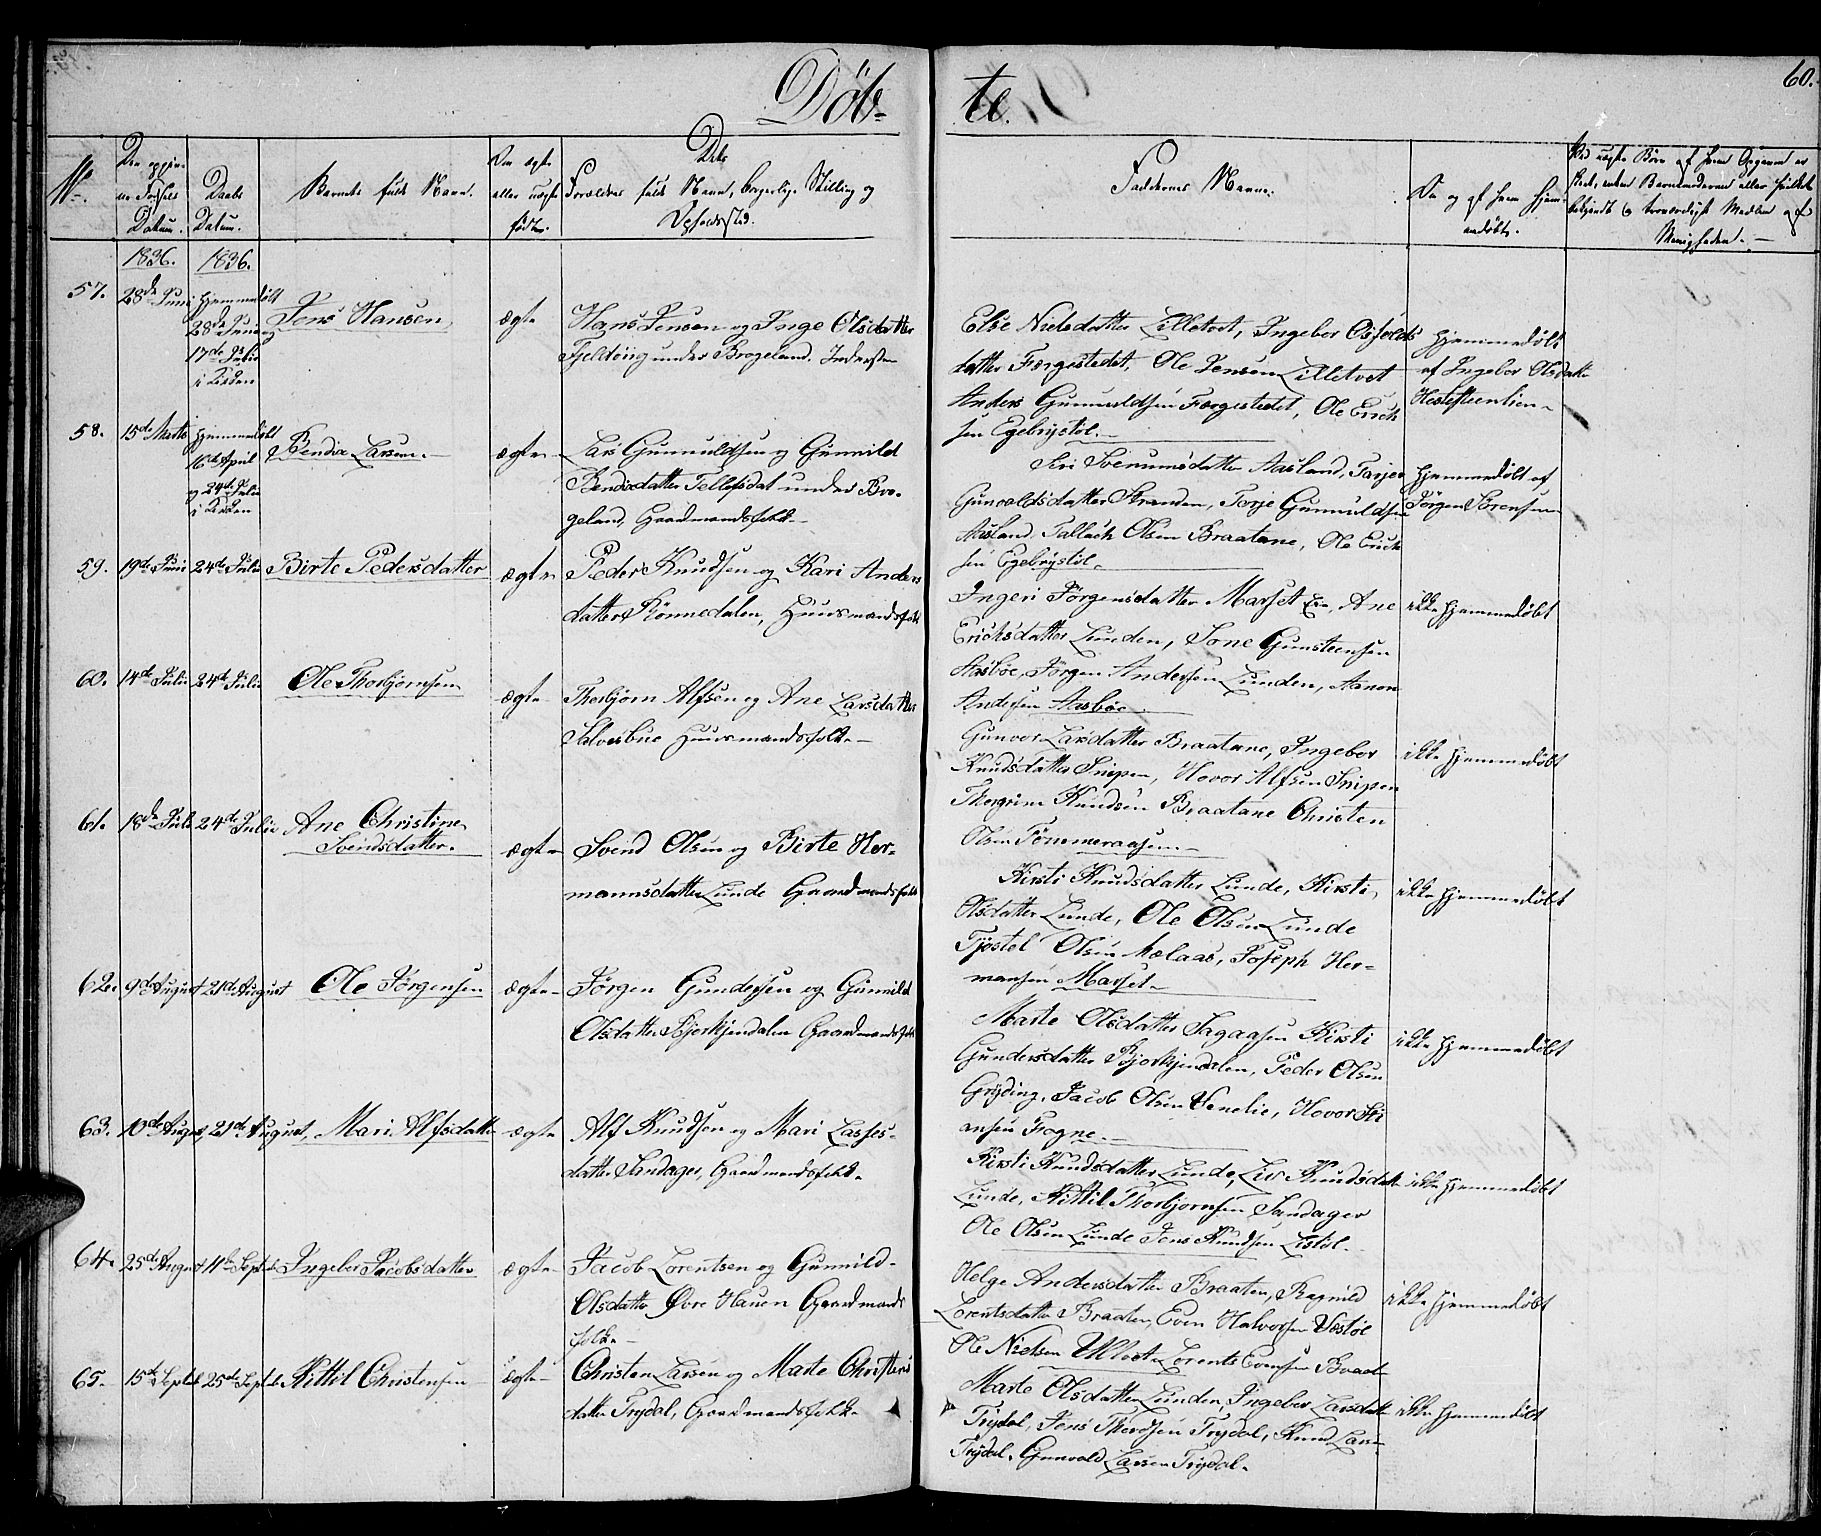 Döb-
te.
60.
No.
Daabs
Datum.
Barnets fulde Navn.
Forældres fulde Navn, borgerlige Stilling og
Opholdssted.
Faddernes Navne.
1836.
1836.
57.
28de Juni
hjemmedøbt
28de Juni og
17de Julie
i Kirken
Jens Hansen
ægte
Hans Jensen og Inge Olsdatter
under Brogeland. Inderster
Else Nielsdatter Lilletvet, Ingebor
datter Færgestedet, Ole Jensen Lilletvet
Anders Gunuldsen Færgestedet, Ole Erich
sen Egebrystöl.
hjemmedøbt
af Ingebor Olsdatter
58.
15de Marts
hjemmedøbt
16de April
og 24de Julie
i Kirken
Bendix Larsen.
ægte
Lars Gunuldsen og Gunild
Bendixdatter under Bro-
geland, Gaardmandsfolk
Siri Svenumsdatter Aasland, Tarjer
Gunvaldsdatter Stranden, Torje Gunuldsen
Aasland, Tallach Olsen Braatane, Ole Erich
sen Egebrystöl.
hjemmedøbt af
Jørgen Sørensen
59.
19de Juni
24de Julie
Birte Pedersdatter
ægte
Peder Knudsen og Kari Anders
datter Rönnedalen, Huusmandsfolk
Ingeri Jörgensdatter Marset, Ane
Erichsdatter Lunden, Sone Gunsteensen
Aasböe, Jörgen Andersen Lunden, Aanon
Andersen Aasböe.
ikke hjemmedøbt
60.
14de Julie
24de Julie
Ole Thorbjornsen
ægte
Thorbjørn Alfsen og Ane Larsdatter
Salvesbue Huusmandsfolk
Gunvor Larsdatter Braatane, Ingebor
Knudsdatter Snipen, Hovor Alfsen Snipen
Thorgrim Knudsen Braatane Christen
Olsen Tömmeraasen
ikke hjemmedøbt
61.
18de Juli
24de Julie
Ane Christine
Svendsdatter.
ægte
Svend Olsen og Birte Her-
mannsdatter Lunde Gaardmandsfolk
Kirsti Knudsdatter Lunde, Kirsti
Olsdatter Lunde, Ole Olsen Lunde
Tjöstel Olsen Mælaas, Joseph Her-
mansen Marset
ikke hjemmedøbt
62.
9de August
21de August
Ole Jörgensen
ægte
Jörgen Gundersen og Gunild
Olsdatter Bjorkjendalen Gaardmandsfolk
Marte Olsdatter Sagaasen Kirsti
Gundersdatter Bjorkjendalen, Peder Olsen
Gryding, Jacob Olsen Venelie, Hovor Sti
ansen Frogne
ikke hjemmedøbt
63.
10de August,
21de August,
Mari Alfsdatter
ægte
Alf Knudsen og Mari Lasses-
datter Sandager, Gaardmandsfolk.
Kirsti Knudsdatter Lunde, Liv Knudsdatter
Lunde, Kittil Thorbjornsen Sandager
Ole Olsen Lunde Jens Knudsen Listöl.
ikke hjemmedøbt
64.
25de August
11te Septbr
Ingebor Jacobsdatter
ægte
Jacob Lorentsen og Gunild
Olsdatter Øvre Hauen Gaardmands
folk.
Helge Andersdatter Braaten, Ragnild
Lorentsdatter Braaten, Even Halvorsen Væstöl
Ole Nielsen Ulltveit Lorents Evensen Braaten
ikke hjemmedøbt
65.
15de Septbr
25de Septbr
Kittil Christensen
ægte
Christen Larsen og Marte Christens
datter Trydal, Gaardmandsfolk.
Marte Olsdatter Lunden, Ingebor Larsdatter
Trydal, Jens Therosen Trydal, Knud Larsen
Trydal, Gunvald Larsen Trydal.
ikke hjemmedøbt